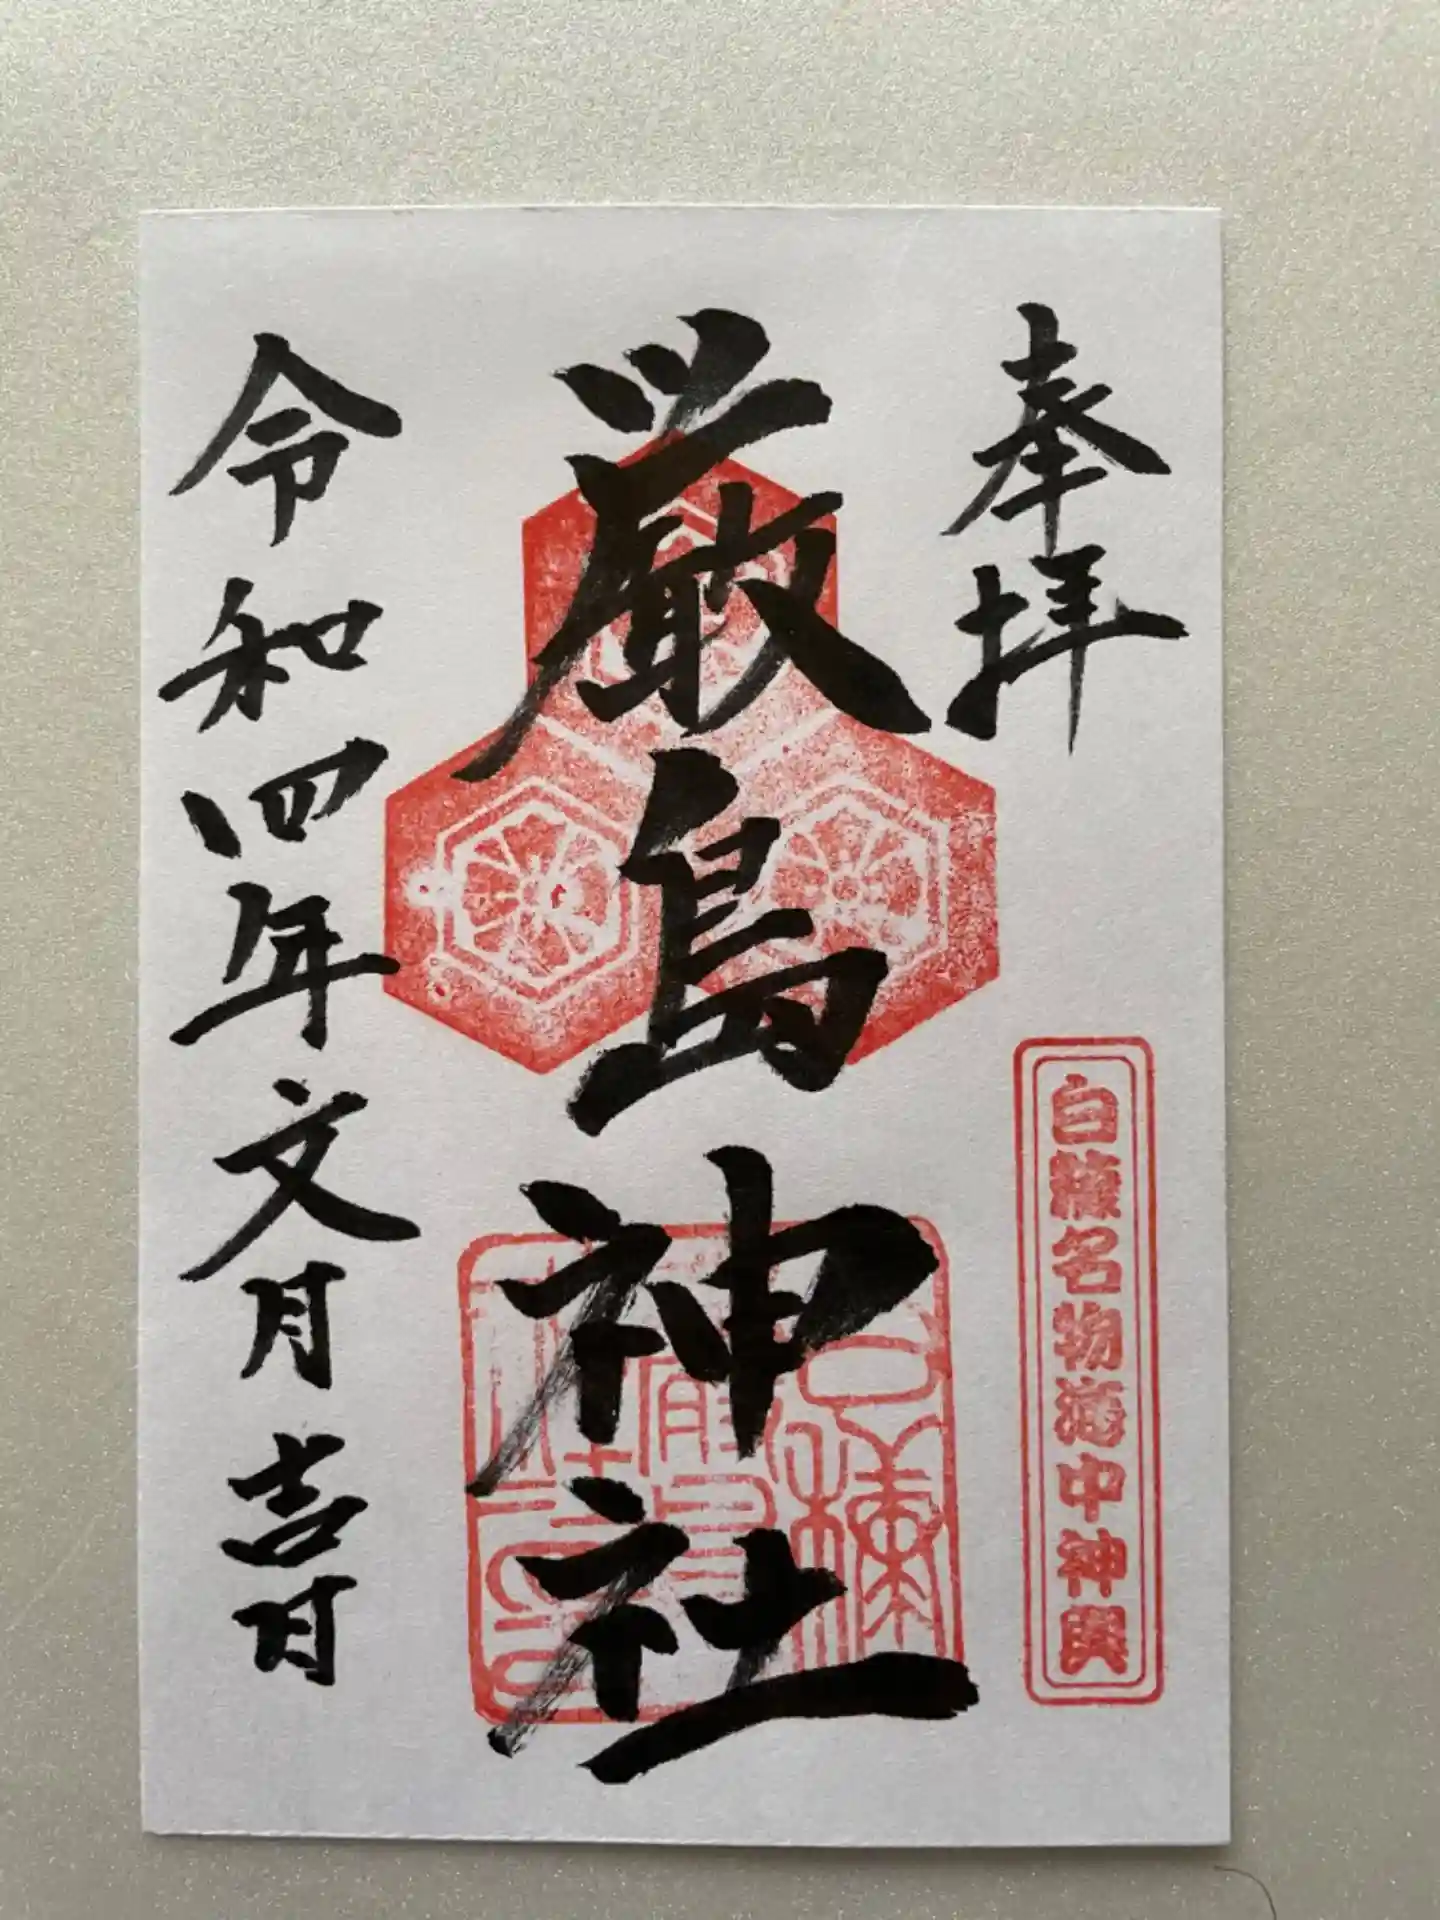 奉拝
白糠名物海中神輿
厳島神社
白糠厳島神社之印
令和四年文月吉日